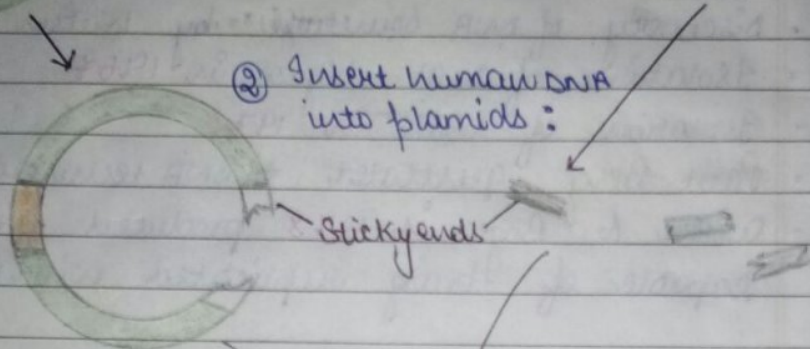 ② Insert human DNA
into plamids :
Sticky ends